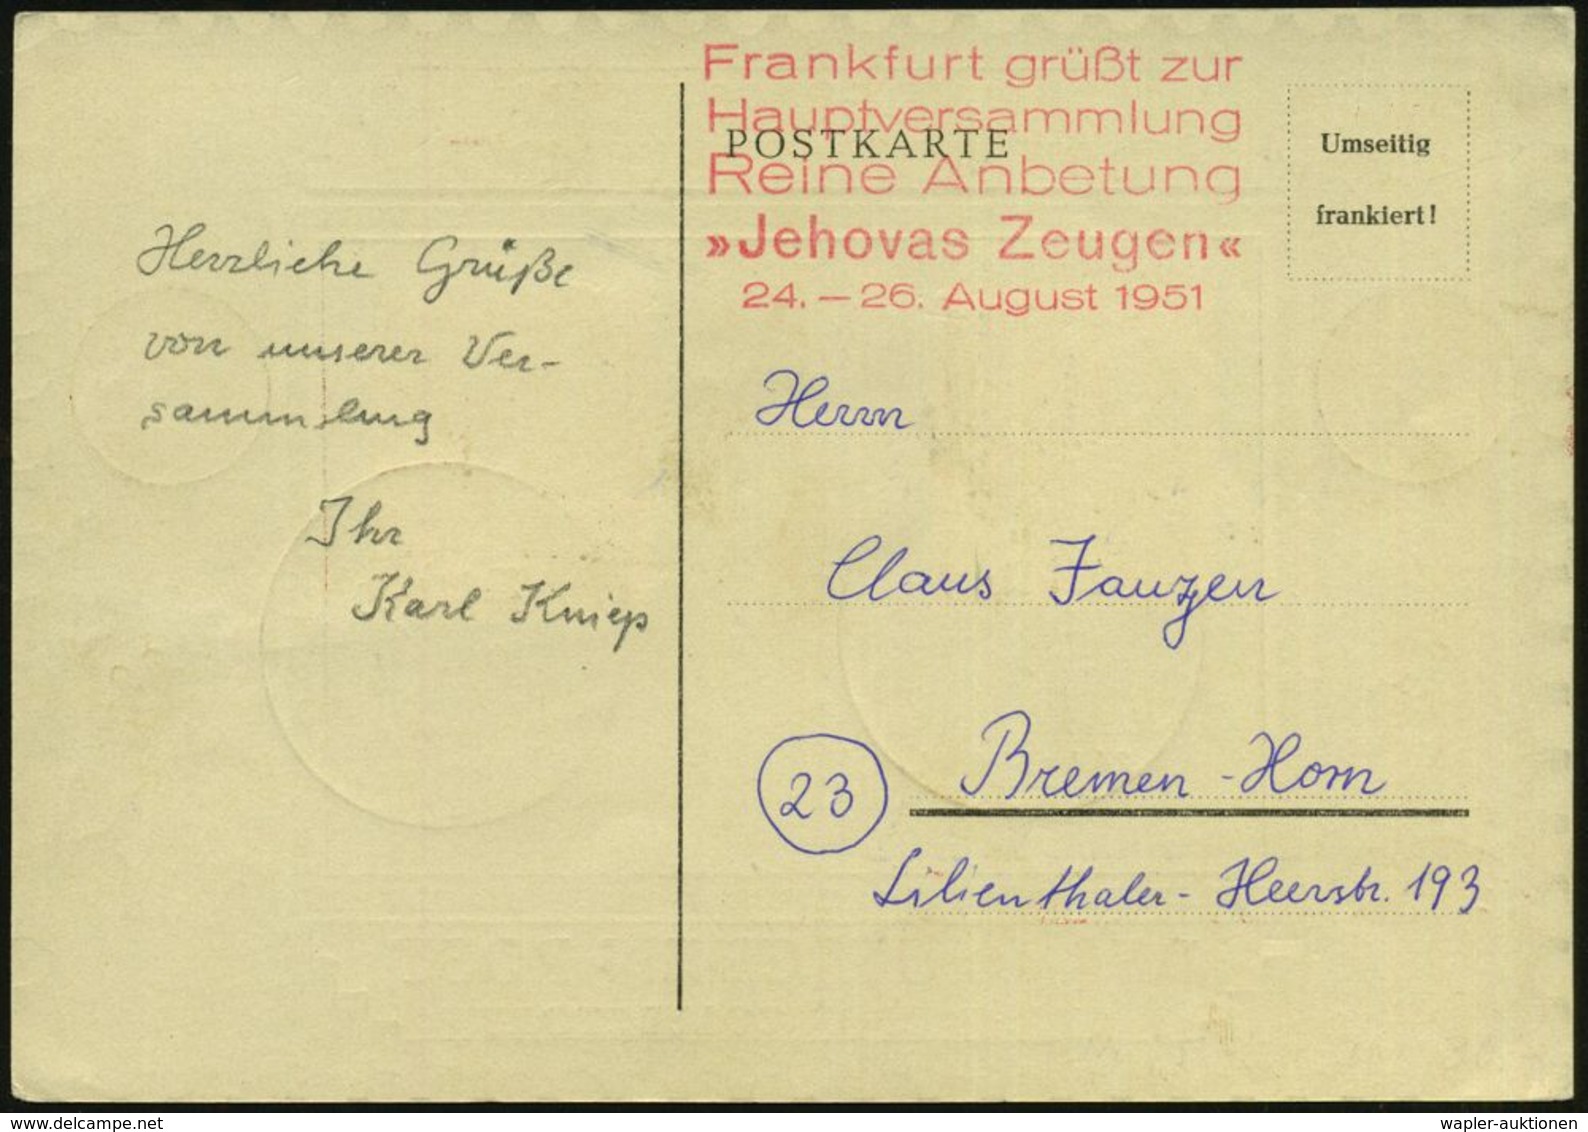 Frankfurt grüßt zur
Hauptversammlung
POSTKARTE
Reine Anbetung
»Jehovas Zeugen«
24. – 26. August 1951
Umseitig
frankiert!
Herzliche Grüße
von unserer Ver-
sammlung
Ihr
Karl Kniep
Herrn
Claus Fanzen
23 Bremen-Horn
Lilienthaler-Heerstr. 193
wapler-auktionen